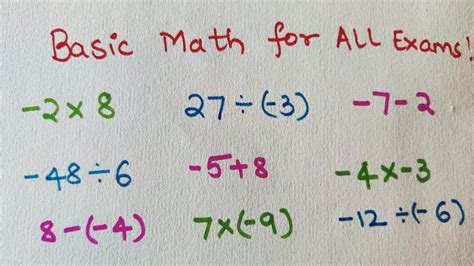 Basic Math for ALL Exams!
-2 × 8 27 ÷ (-3) -7 - 2
-48 ÷ 6 -5 + 8 -4 × -3
8 - (-4) 7 × (-9) -12 ÷ (-6)